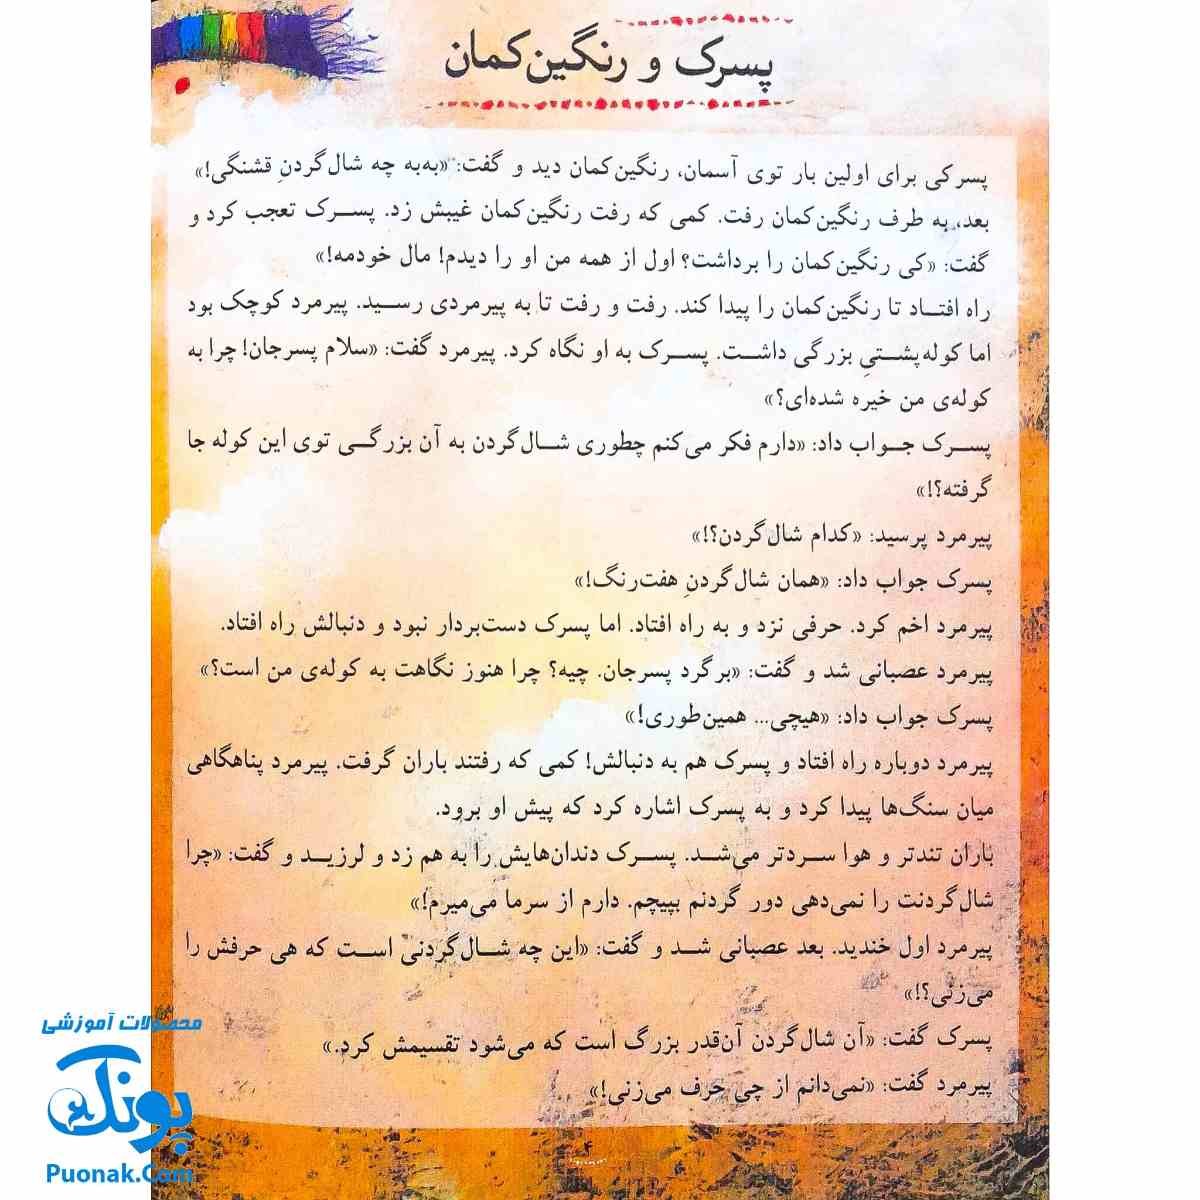 پسرک و رنگین‌کمان
پسرکی برای اولین بار توی آسمان، رنگین‌کمان دید و گفت: «به‌به چه شال‌گردنِ قشنگی!»
بعد، به طرف رنگین‌کمان رفت. کمی که رفت رنگین‌کمان غیبش زد. پسرک تعجب کرد و
گفت: «کی رنگین‌کمان را برداشت؟ اول از همه من او را دیدم! مال خودمه!»
راه افتاد تا رنگین‌کمان را پیدا کند. رفت و رفت تا به پیرمردی رسید. پیرمرد کوچک بود
اما کوله‌پشتیِ بزرگی داشت. پسرک به او نگاه کرد. پیرمرد گفت: «سلام پسرجان! چرا به
کوله‌ی من خیره شده‌ای؟»
پسرک جواب داد: «دارم فکر می‌کنم چطوری شال‌گردن به آن بزرگی توی این کوله جا
گرفته؟!»
پیرمرد پرسید: «کدام شال‌گردن؟!»
پسرک جواب داد: «همان شال‌گردنِ هفت‌رنگ!»
پیرمرد اخم کرد. حرفی نزد و به راه افتاد. اما پسرک دست‌بردار نبود و دنبالش راه افتاد.
پیرمرد عصبانی شد و گفت: «برگرد پسرجان. چیه؟ چرا هنوز نگاهت به کوله‌ی من است؟»
پسرک جواب داد: «هیچی... همین‌طوری!»
پیرمرد دوباره راه افتاد و پسرک هم به دنبالش! کمی که رفتند باران گرفت. پیرمرد پناهگاهی
میان سنگ‌ها پیدا کرد و به پسرک اشاره کرد که پیش او برود.
باران تندتر و هوا سردتر می‌شد. پسرک دندان‌هایش را به هم زد و لرزید و گفت: «چرا
شال‌گردنت را نمی‌دهی دور گردنم بپیچم. دارم از سرما می‌میرم!»
پیرمرد اول خندید. بعد عصبانی شد و گفت: «این چه شال‌گردنی است که هی حرفش را
می‌زنی؟!»
پسرک گفت: «آن شال‌گردن آن‌قدر بزرگ است که می‌شود تقسیمش کرد.»
پیرمرد گفت: «نمی‌دانم از چی حرف می‌زنی!»
۴
محصولات آموزشی
پونک
Puonak.Com